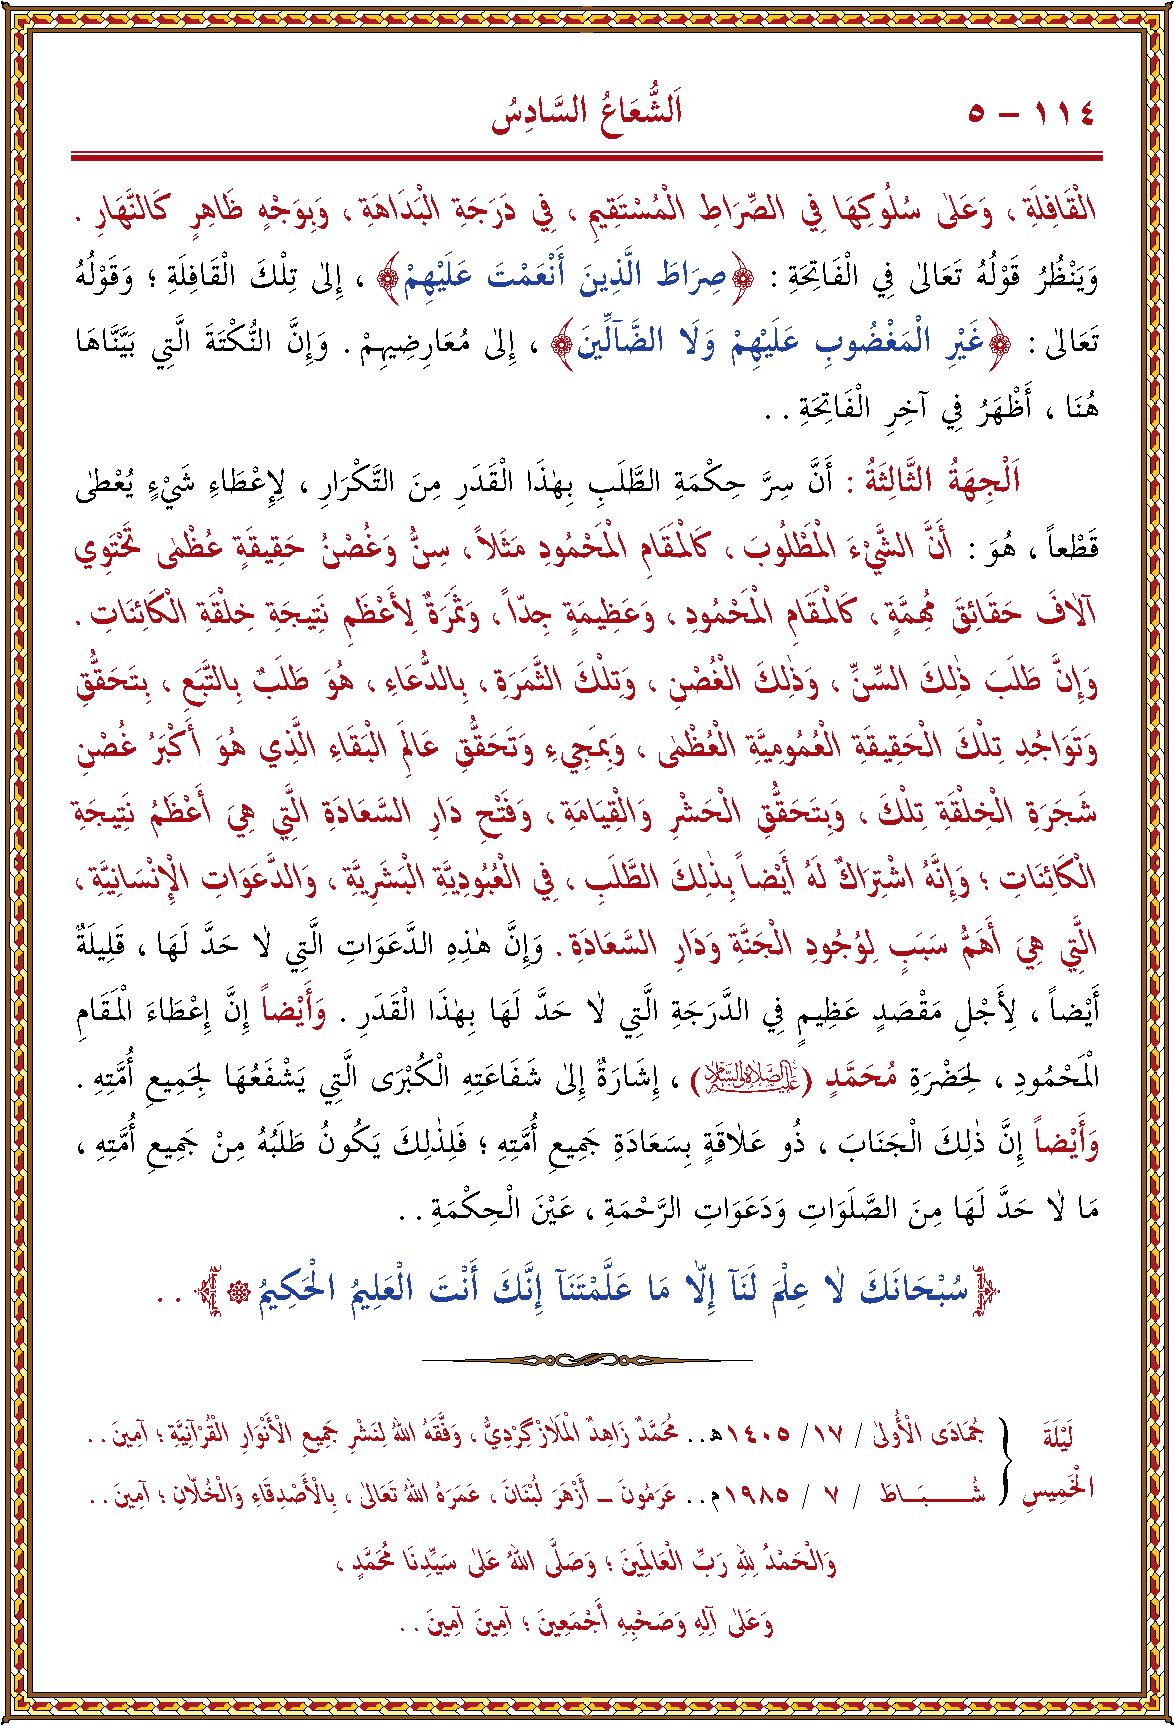 ١١٤ – ٥ اَلشُّعَاعُ السَّادِسُ
الْقَافِلَةِ ، وَعَلٰى سُلُوكِهَا فِي الصِّرَاطِ الْمُسْتَقِيمِ ، فِي دَرَجَةِ الْبَدَاهَةِ ، وَبِوَجْهٍ ظَاهِرٍ كَالنَّهَارِ .
وَيَنْظُرُ قَوْلُهُ تَعَالٰى فِي الْفَاتِحَةِ : ﴿صِرَاطَ الَّذِينَ أَنْعَمْتَ عَلَيْهِمْ﴾ ، إِلٰى تِلْكَ الْقَافِلَةِ ؛ وَقَوْلُهُ
تَعَالٰى : ﴿غَيْرِ الْمَغْضُوبِ عَلَيْهِمْ وَلَا الضَّآلِّينَ﴾ ، إِلٰى مُعَارِضِيهِمْ . وَإِنَّ النُّكْتَةَ الَّتِي بَيَّنَّاهَا
هُنَا ، أَظْهَرُ فِي آخِرِ الْفَاتِحَةِ . .
اَلْجِهَةُ الثَّالِثَةُ : أَنَّ سِرَّ حِكْمَةِ الطَّلَبِ بِهٰذَا الْقَدَرِ مِنَ التَّكْرَارِ ، لِإِعْطَاءِ شَيْءٍ يُعْطٰى
قَطْعاً ، هُوَ : أَنَّ الشَّيْءَ الْمَطْلُوبَ ، كَالْمَقَامِ الْمَحْمُودِ مَثَلاً ، سِنٌّ وَغُصْنُ حَقِيقَةٍ عُظْمٰى تَحْتَوِي
آلاٰفَ حَقَائِقَ مُهِمَّةٍ ، كَالْمَقَامِ الْمَحْمُودِ ، وَعَظِيمَةٍ جِدّاً ، وَثَمَرَةٌ لِأَعْظَمِ نَتِيجَةِ خِلْقَةِ الْكَائِنَاتِ .
وَإِنَّ طَلَبَ ذٰلِكَ السِّنِّ ، وَذٰلِكَ الْغُصْنِ ، وَتِلْكَ الثَّمَرَةِ ، بِالدُّعَاءِ ، هُوَ طَلَبٌ بِالتَّبَعِ ، بِتَحَقُّقِ
وَتَوَاجُدِ تِلْكَ الْحَقِيقَةِ الْعُمُومِيَّةِ الْعُظْمٰى ، وَبِمَجِيءِ وَتَحَقُّقِ عَالَمِ الْبَقَاءِ الَّذِي هُوَ أَكْبَرُ غُصْنِ
شَجَرَةِ الْخِلْقَةِ تِلْكَ ، وَبِتَحَقُّقِ الْحَشْرِ وَالْقِيَامَةِ ، وَفَتْحِ دَارِ السَّعَادَةِ الَّتِي هِيَ أَعْظَمُ نَتِيجَةِ
الْكَائِنَاتِ ؛ وَإِنَّهُ اشْتِرَاكٌ لَهُ أَيْضاً بِذٰلِكَ الطَّلَبِ ، فِي الْعُبُودِيَّةِ الْبَشَرِيَّةِ ، وَالدَّعَوَاتِ الْإِنْسَانِيَّةِ ،
الَّتِي هِيَ أَهَمُّ سَبَبٍ لِوُجُودِ الْجَنَّةِ وَدَارِ السَّعَادَةِ . وَإِنَّ هٰذِهِ الدَّعَوَاتِ الَّتِي لاٰ حَدَّ لَهَا ، قَلِيلَةٌ
أَيْضاً ، لِأَجْلِ مَقْصَدٍ عَظِيمٍ فِي الدَّرَجَةِ الَّتِي لاٰ حَدَّ لَهَا بِهٰذَا الْقَدَرِ . وَأَيْضاً إِنَّ إِعْطَاءَ الْمَقَامِ
الْمَحْمُودِ ، لِحَضْرَةِ مُحَمَّدٍ (عَلَيْهِ الصَّلَاةُ وَالسَّلَامُ) ، إِشَارَةٌ إِلٰى شَفَاعَتِهِ الْكُبْرَى الَّتِي يَشْفَعُهَا لِجَمِيعِ أُمَّتِهِ .
وَأَيْضاً إِنَّ ذٰلِكَ الْجَنَابَ ، ذُو عَلاٰقَةٍ بِسَعَادَةِ جَمِيعِ أُمَّتِهِ ؛ فَلِذٰلِكَ يَكُونُ طَلَبُهُ مِنْ جَمِيعِ أُمَّتِهِ ،
مَا لاٰ حَدَّ لَهَا مِنَ الصَّلَوَاتِ وَدَعَوَاتِ الرَّحْمَةِ ، عَيْنَ الْحِكْمَةِ . .
﴿سُبْحَانَكَ لاٰ عِلْمَ لَنَآ إِلّاٰ مَا عَلَّمْتَنَآ إِنَّكَ أَنْتَ الْعَلِيمُ الْحَكِيمُ﴾ . .
لَيْلَةَ جُمَادَى الْأُولٰى / ١٧/ ١٤٠٥هـ . . مُحَمَّدٌ زَاهِدٌ الْمَلَازْكِرْدِيُّ ، وَفَّقَهُ اللهُ لِنَشْرِ جَمِيعِ الْأَنْوَارِ الْقُرْآنِيَّةِ ؛ آمِينَ . .
الْخَمِيسِ شُـبَـاطَ / ٧ / ١٩٨٥م . . عَرَمُونَ – أَزْهَرَ لُبْنَانَ ، عَمَرَهُ اللهُ تَعَالٰى ، بِالْأَصْدِقَاءِ وَالْخُلّاٰنِ ؛ آمِينَ . .
وَالْحَمْدُ لِلهِ رَبِّ الْعَالَمِينَ ؛ وَصَلَّى اللهُ عَلٰى سَيِّدِنَا مُحَمَّدٍ ،
وَعَلٰى آلِهِ وَصَحْبِهِ أَجْمَعِينَ ؛ آمِينَ آمِينَ . .